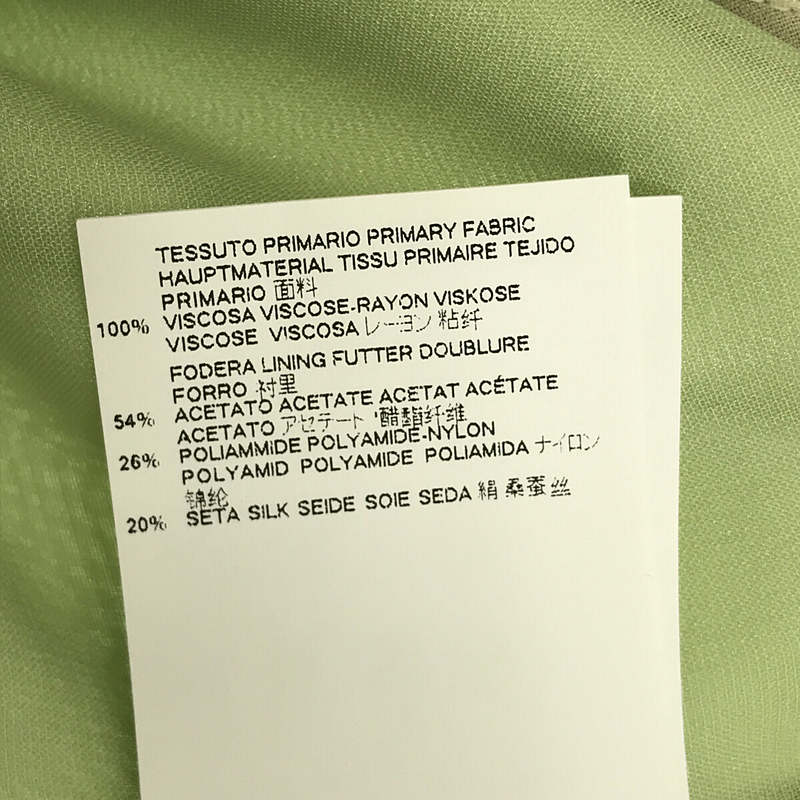 TESSUTO PRIMARIO PRIMARY FABRIC
HAUPTMATERIAL TISSU PRIMAIRE TEJIDO
PRIMARIO 面料
100% VISCOSA VISCOSE-RAYON VISKOSE
VISCOSE VISCOSA レーヨン 粘纤
FODERA LINING FUTTER DOUBLURE
FORRO 衬里
54% ACETATO ACETATE ACETAT ACÉTATE
ACETATO アセテート 醋酯纤维
26% POLIAMMIDE POLYAMIDE-NYLON
POLYAMID POLYAMIDE POLIAMIDA ナイロン
锦纶
20% SETA SILK SEIDE SOIE SEDA 絹 桑蚕丝